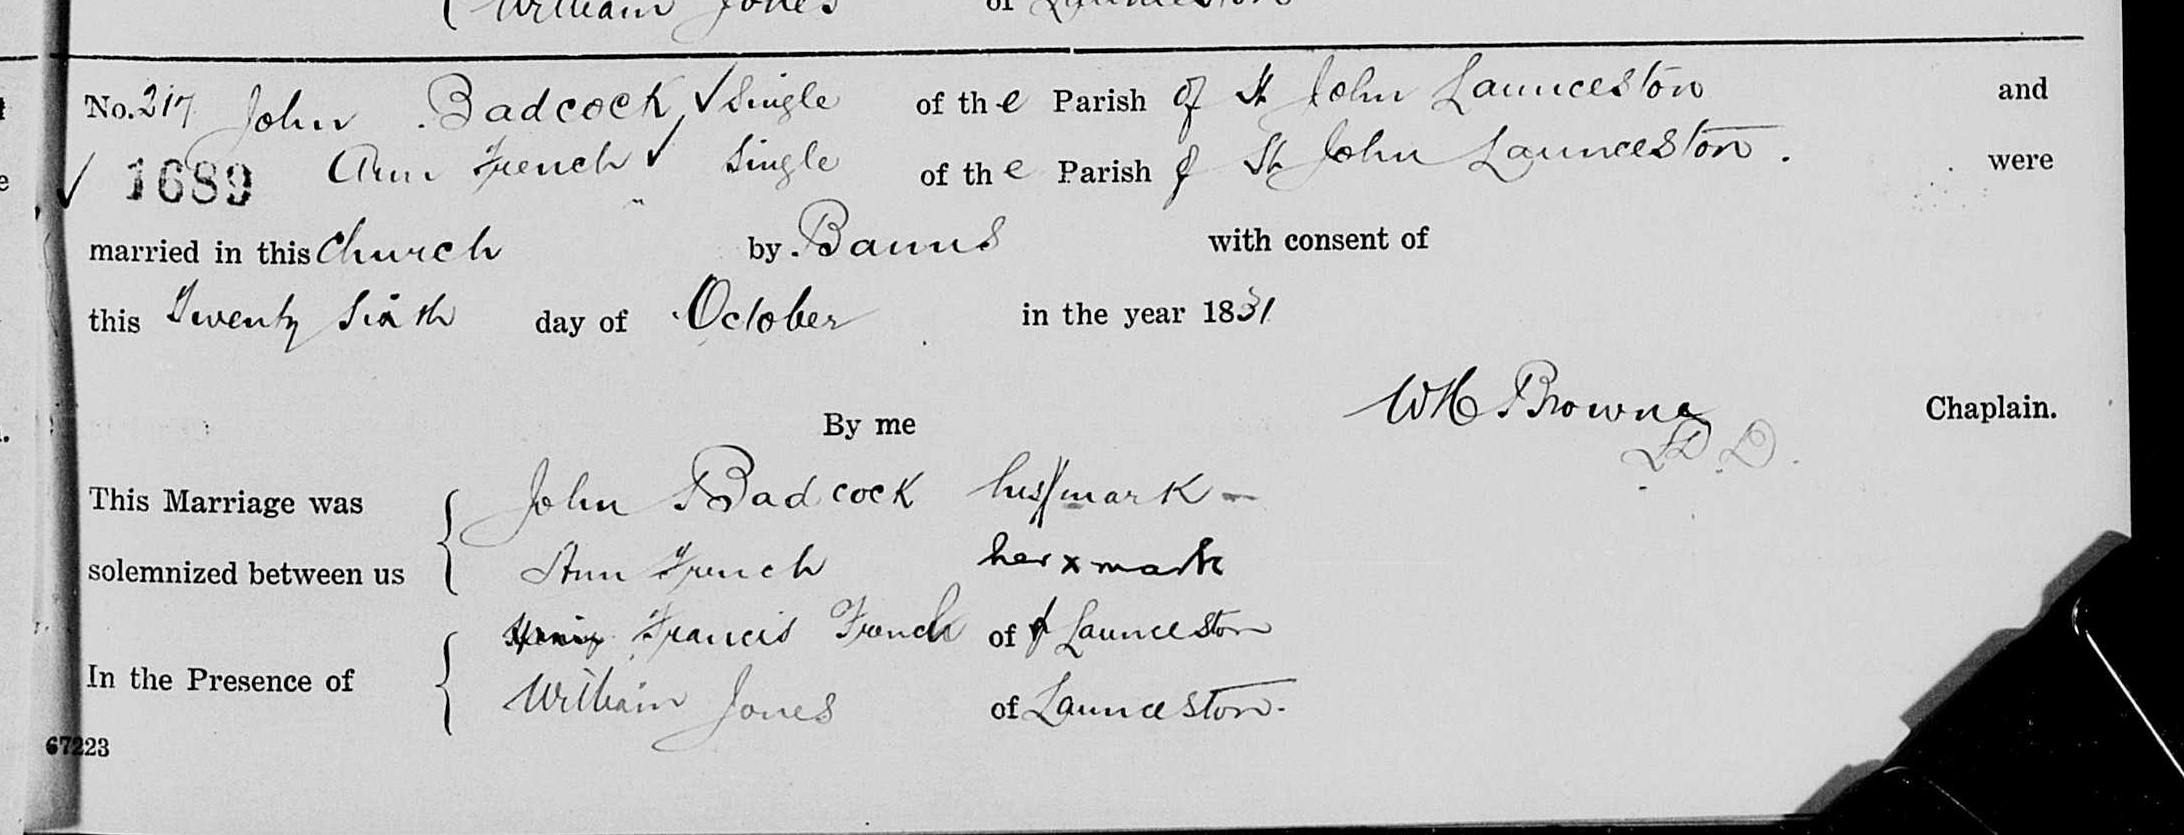 William Jones of Launceston
No. 217 John Badcock ✓ Single of the Parish of St John Launceston and
✓ 1689 Ann French ✓ Single of the Parish of St John Launceston. were
married in this Church by Banns with consent of
this Twenty Sixth day of October in the year 1831
By me WH Browne Chaplain.
LL.D.
This Marriage was John Badcock his mark —
solemnized between us Ann French her x mark
Francis French of Launceston
In the Presence of
William Jones of Launceston.
67223